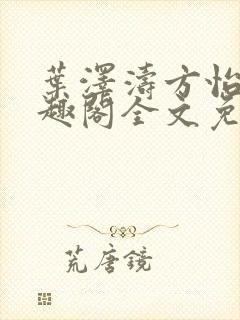 葉澤濤方怡
趣閣全文免
荒唐鏡